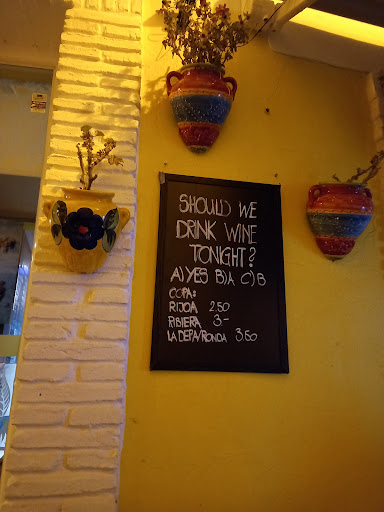 SHOULD WE
DRINK WINE
TONIGHT?
A)YES B)A C)B
COPA:
RIJOA 2.50
RIBIERA 3-
LADEPA/RONDA 3.50